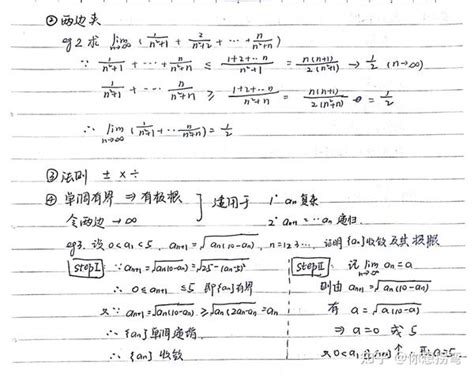 ② 两边夹
eg2 求 lim_{n→∞} (1/(n²+1) + 2/(n²+2) + … + n/(n²+n))
∵ 1/(n²+1) + … + n/(n²+n) ≤ (1+2+…n)/(n²+1) = n(n+1)/(2(n²+1)) → 1/2 (n→∞)
1/(n²+1) + … n/(n²+n) ≥ (1+2+…n)/(n²+n) = n(n+1)/(2(n²+n)) = 1/2
∴ lim_{n→∞} (1/(n²+1) + … n/(n²+n)) = 1/2
③ 法则 ± × ÷
④ 单调有界 ⇒ 有极限
令两边 → ∞
适用于
1° an 复杂
2° an+1 = …an 递归.
eg3. 设 0<a1<5, an+1=√(an(10-an)), n=1 2 3…, 证明{an}收敛及其极限
step I
∵ an+1=√(an(10-an))=√(25-(an-5)²)
∴ 0≤an+1≤5 即{an}有界
又∵ an+1=√(an(10-an)) ≥ √(an(2an-an))=an
∴ {an}单调递增
∴ {an} 收敛
step II
记 lim_{n→∞} an=a
则由 an+1=√(an(10-an))
有 a=√(a(10-a))
⇒ a=0 或 5
又 0<a1 且{an}↑ a=5
知乎 @你忘拐弯